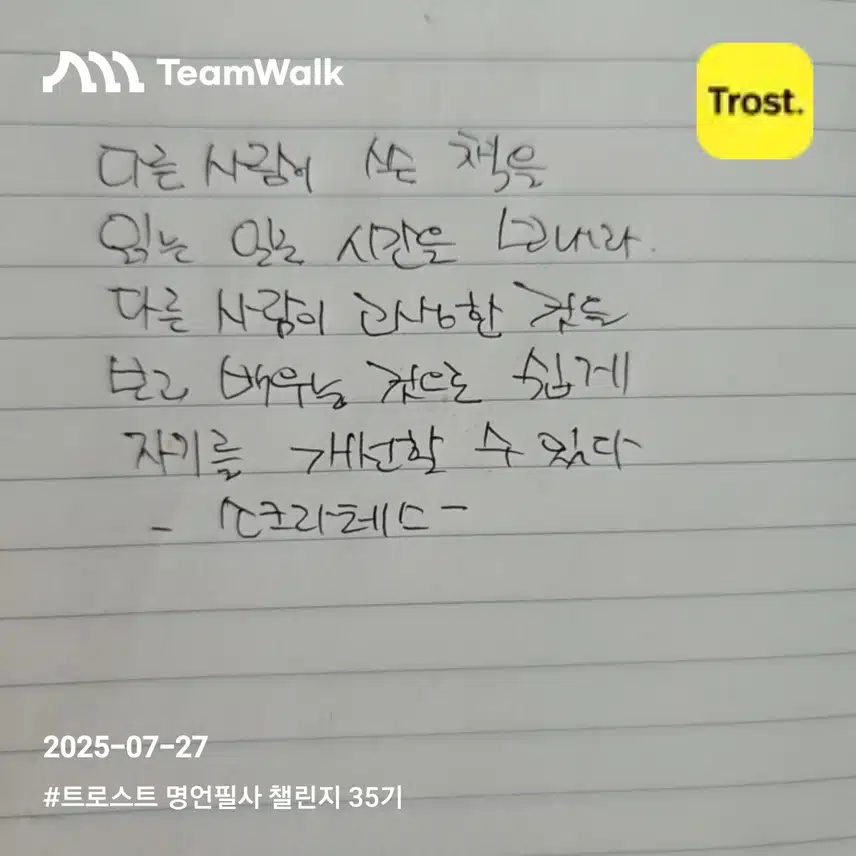 TeamWalk
Trost.
다른 사람이 쓴 책을
읽는 일로 시간을 보내라.
다른 사람이 고생한 것을
보고 배우는 것으로 쉽게
자기를 개선할 수 있다
- 소크라테스 -
2025-07-27
#트로스트 명언필사 챌린지 35기